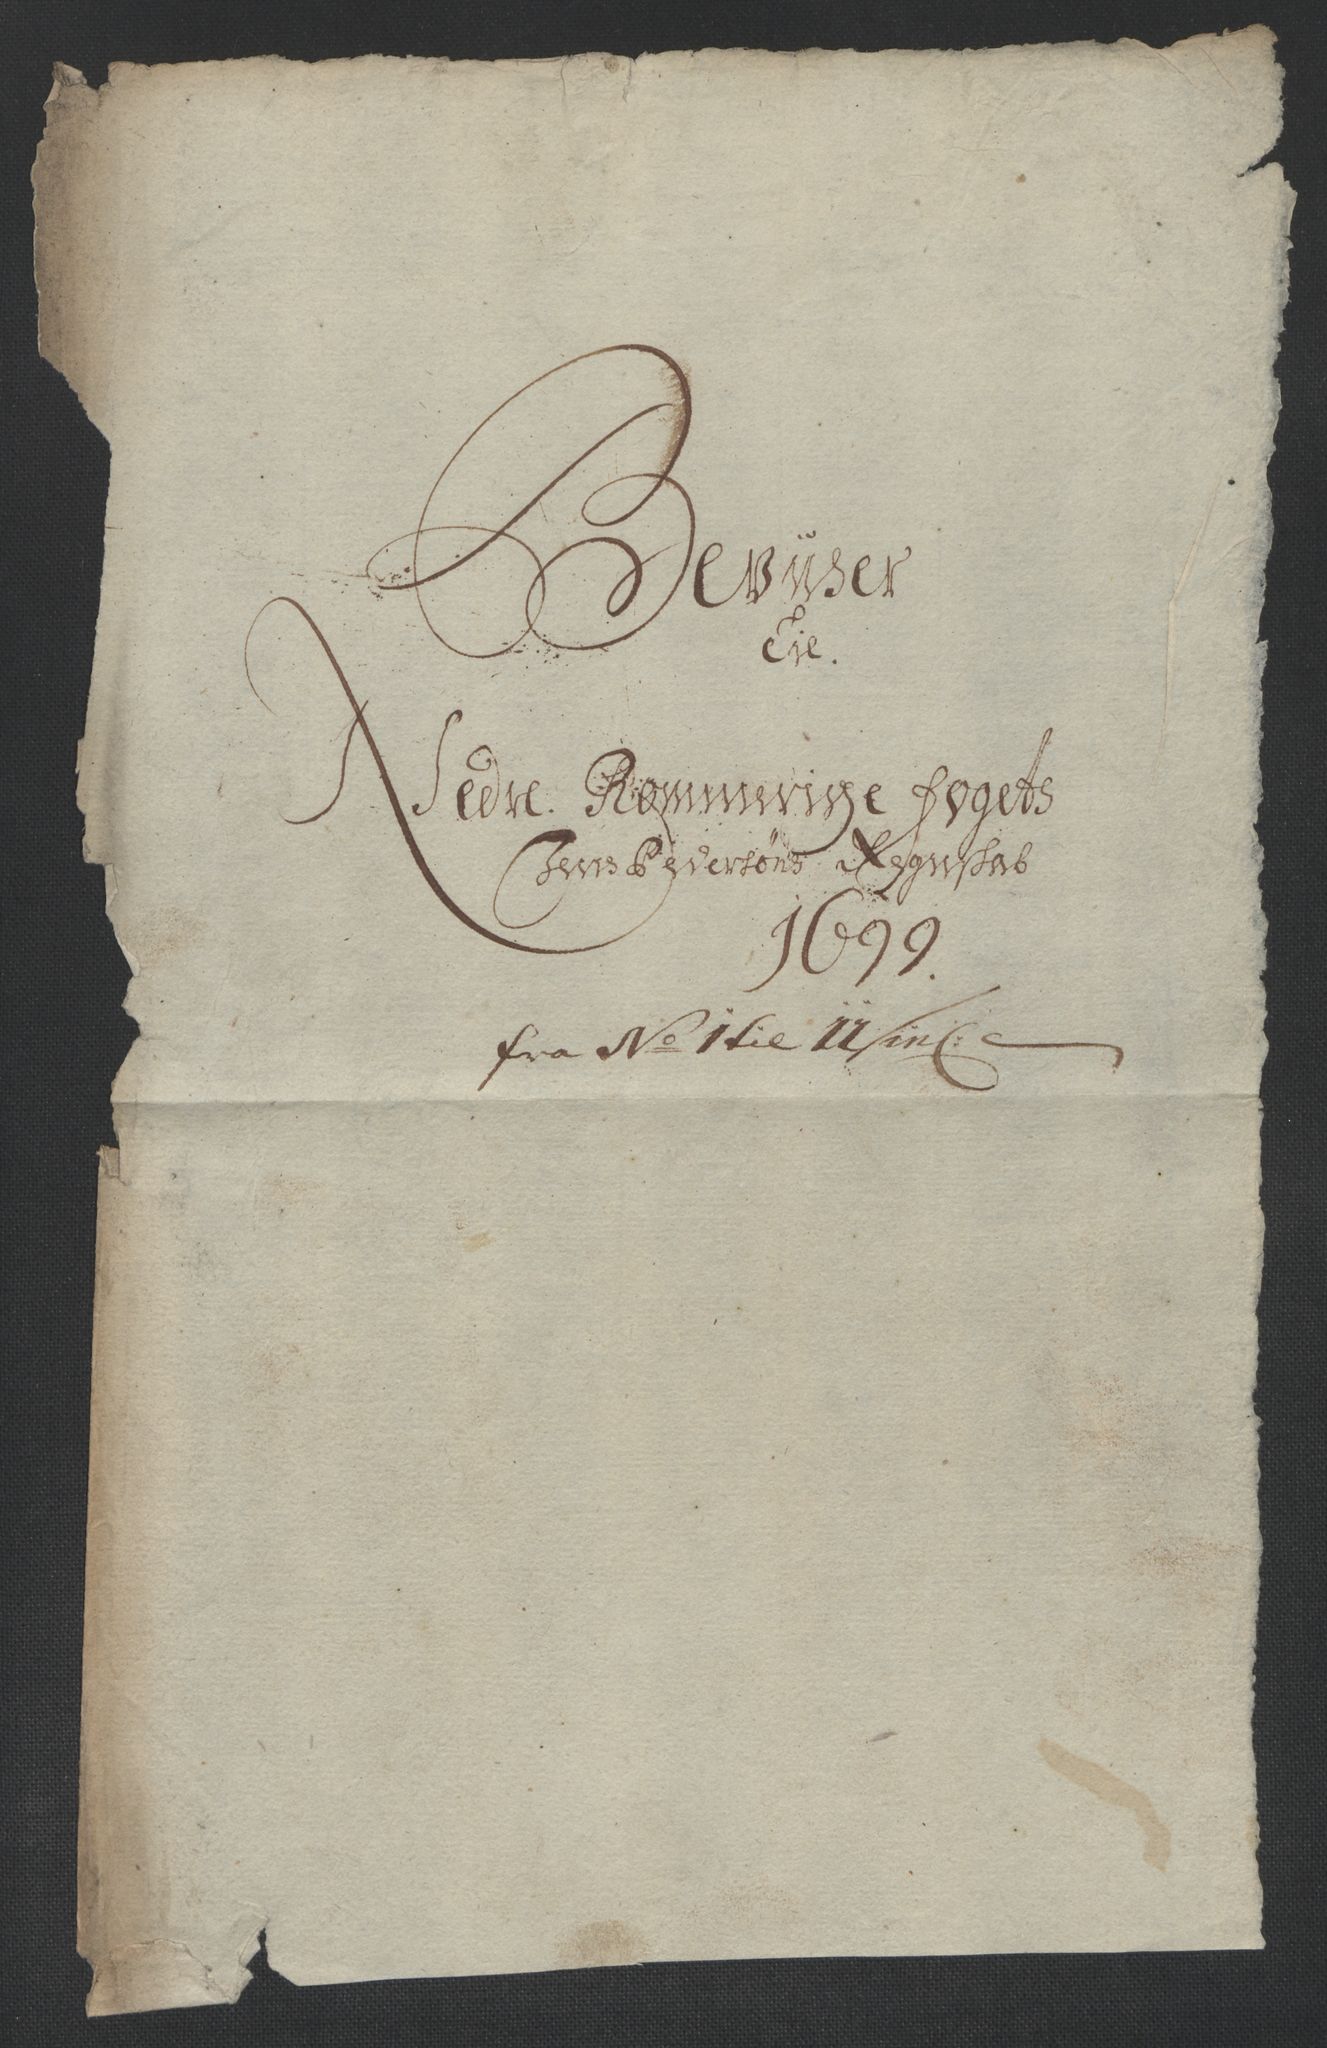 Bevüser
Til.
Nedre. Rommerige fogets
Jens Pedersøns Regnskab
1699.
fra No 1 til 11 incl: